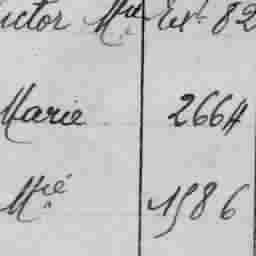 ictor Mie Ext. 82
Marie 2664
Mié 1586